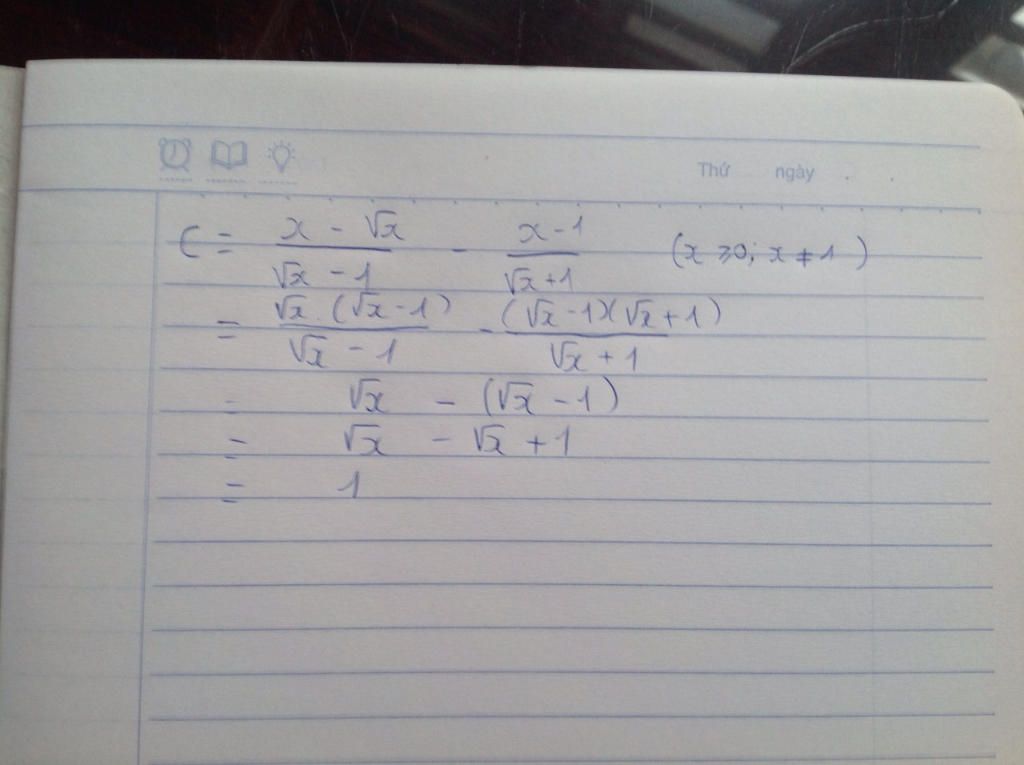 Thứ ngày . .
C = \frac{x - \sqrt{x}}{\sqrt{x} - 1} - \frac{x - 1}{\sqrt{x} + 1} (x ≥ 0; x ≠ 1)
= \frac{\sqrt{x} . (\sqrt{x} - 1)}{\sqrt{x} - 1} - \frac{(\sqrt{x} - 1)(\sqrt{x} + 1)}{\sqrt{x} + 1}
= \sqrt{x} - (\sqrt{x} - 1)
= \sqrt{x} - \sqrt{x} + 1
= 1